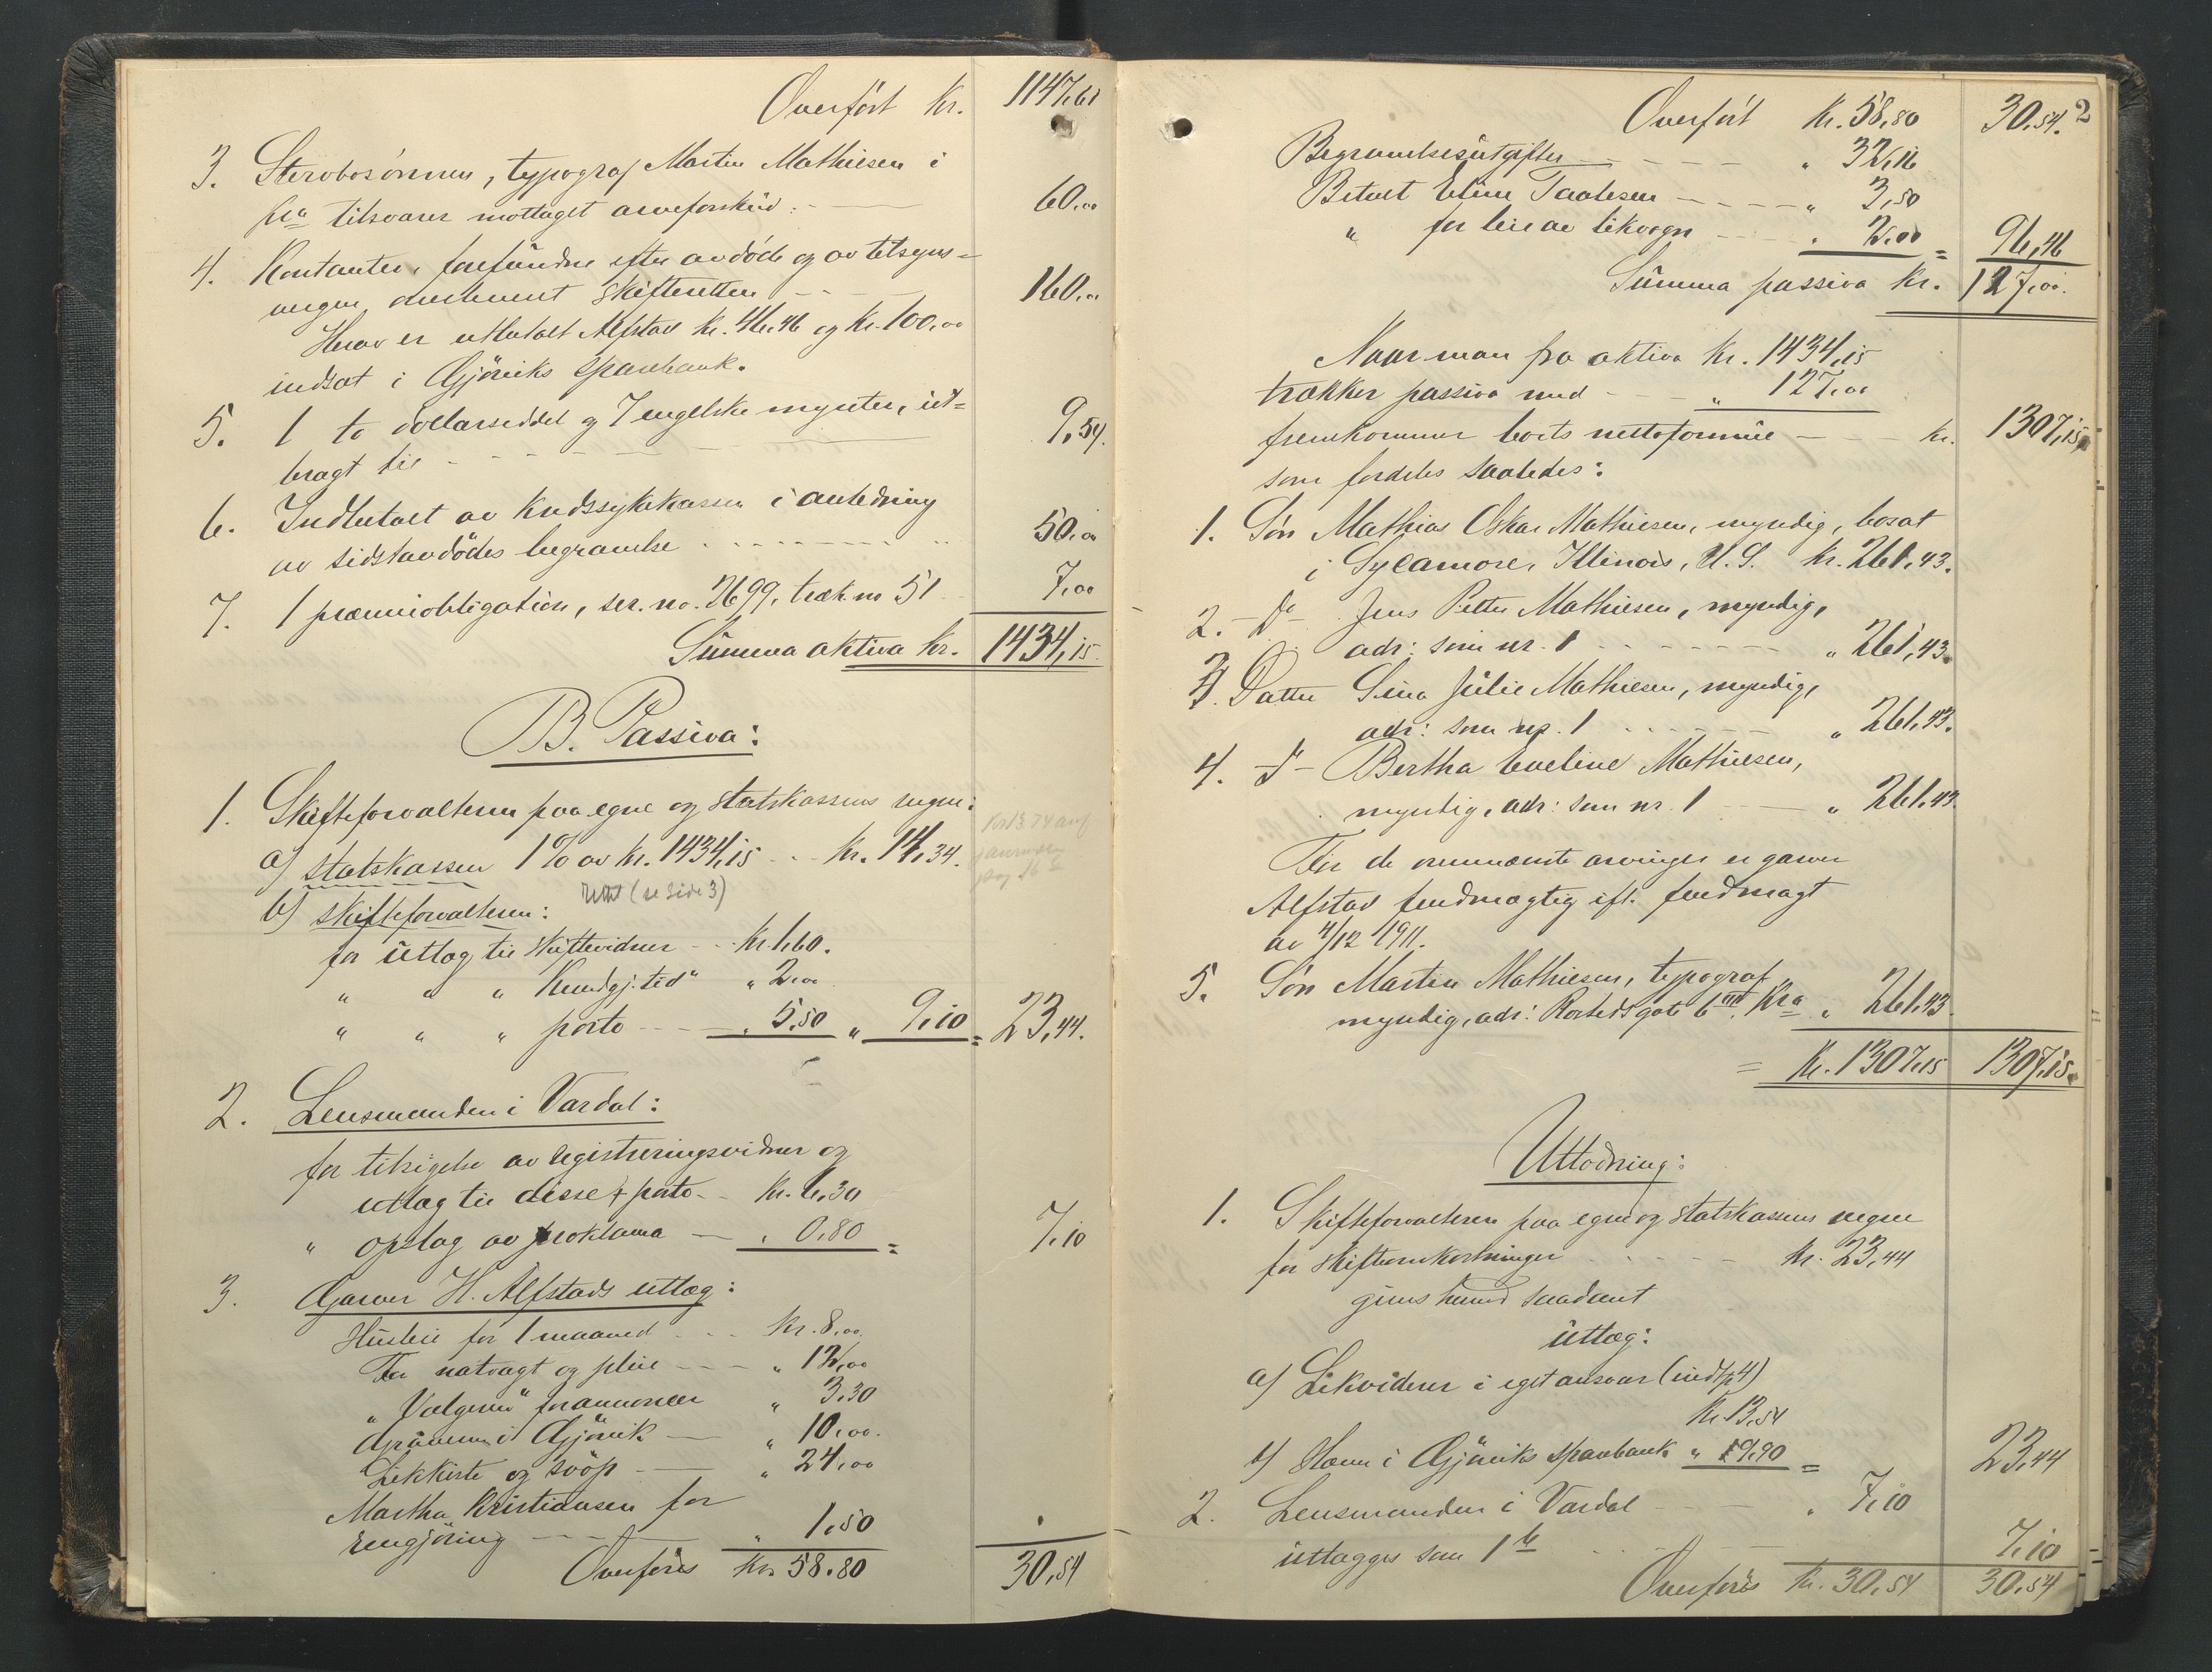 Overført kr. 1147,61
3. Sterbosønnen, typograf Martin Mathiesen i
Kra tilsvarer mottaget arveforskud: 60,00
4. Kontanter, forefundne efter avdøde og av tilsyns-
vergen indlevert skifteretten 160,00
Herav er utbetalt Alfstad kr. 46,46 og kr. 100,00
indsat i Gjøviks sparebank.
5. 1 to dollarseddel og 7 engelske mynter, ut-
bragt til 9,54
6. Indbetalt av kredssykekassen i anledning
av sidstavdødes begravelse 50,00
7. 1 præmieobligation, ser. no. 2699, træk no 51 7,00
Summa aktiva kr. 1434,15
B. Passiva:
1. Skifteforvalteren paa egne og statskassens vegne:
a) statskassen 1% av kr. 1434,15 kr. 14,34.
(se side 3)
b) skifteforvalteren:
for utlæg til skiftevidner kr. 1,60.
" " " Kundgj.tid" " 2,00
" " " porto " 5,50 " 9,10 = 23,44.
2. Lensmanden i Vardal:
for tilsigelse av registreringsvidner og
utlæg til disse + porto kr. 6,30
" opslag av proklama " 0,80 = 7,10
3. Garver H. Alfstads utlæg:
Husleie for 1 maaned kr. 8,00
For natvagt og pleie " 12,00
" Velgeren" for annoncer " 3,30
Graveren i Gjøvik " 10,00.
Likkiste og svøp " 24,00
Martha Kristiansen for
rengjøring " 1,50
Overføres kr. 58.80 30,54
2
Overført kr. 58,80 30,54.
Begravelsesutgifter " 32,16
Betalt Eline Paulsen " 3,50
" for leie av likvogn " 2,00 = 96,46
Summa passiva kr. 127,00.
Naar man fra aktiva kr. 1434,15
trækker passiva med " 127,00
fremkommer boets nettoformue kr. 1307,15
som fordeles saaledes:
1. Søn Mathias Oskar Mathiesen, myndig, bosat
i Sycamore, Illinois, U.S. kr. 261,43.
2. -Do- Jens Petter Mathiesen, myndig,
adr: som nr. 1 " 261,43
3. Datter Lina Julie Mathiesen, myndig,
adr: som nr. 1 " 261,43.
4. -D- Bertha Eveline Mathiesen,
myndig, adr: som nr. 1 " 261,43
For de ovennævnte arvinger er garver
Alfstad fuldmægtig ifl. fuldmagt
av 4/12 1911.
5. Søn Martin Mathiesen, typograf
myndig, adr: Rosteds gate 6 III, Kra " 261,43
= kr. 1307,15 1307,15.
Utlodning:
1. Skifteforvalteren paa egne og statskassens vegne
for skifteomkostninger kr. 23,44
gives herved saadant
utlæg:
a) Likviderer i eget ansvar (indt. p 4)
kr. 13,54
b) Haves i Gjøviks sparebank " 9,90 = 23,44
2. Lensmanden i Vardal " 7,10
utlægges som 1 b 7,10
Overføres kr. 30,54 30,54